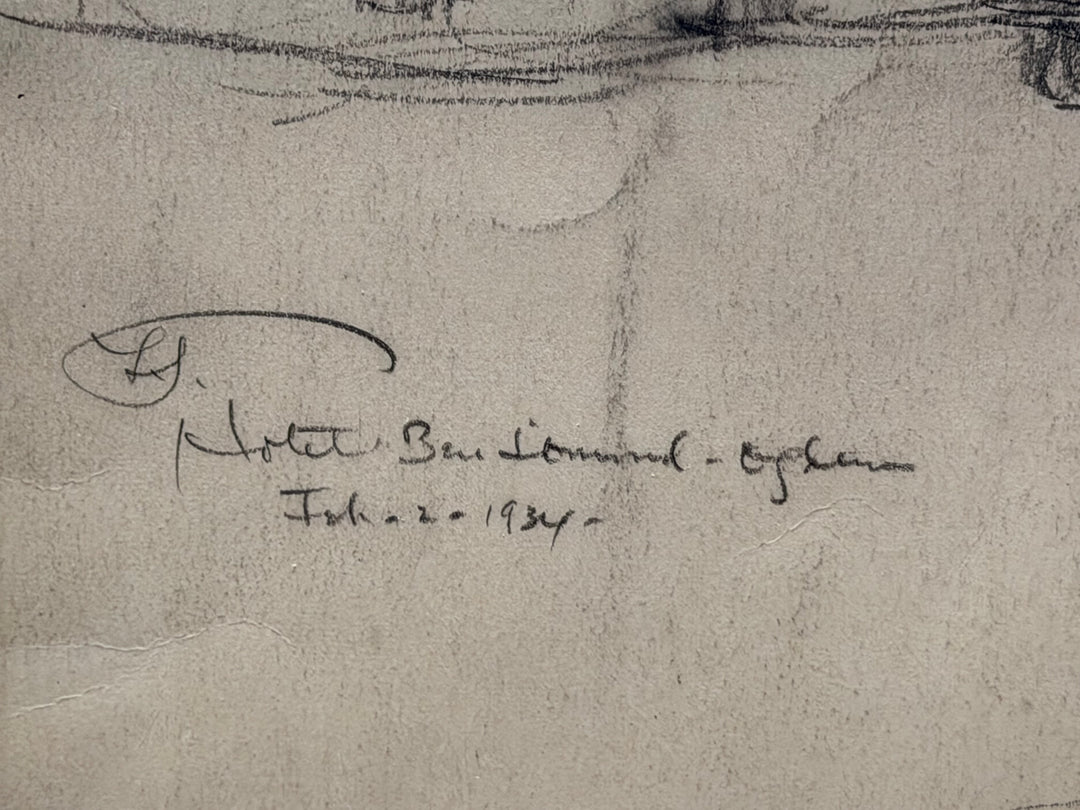 Hotel Ben Lomond - Ogden
Feb. 2 - 1934 -